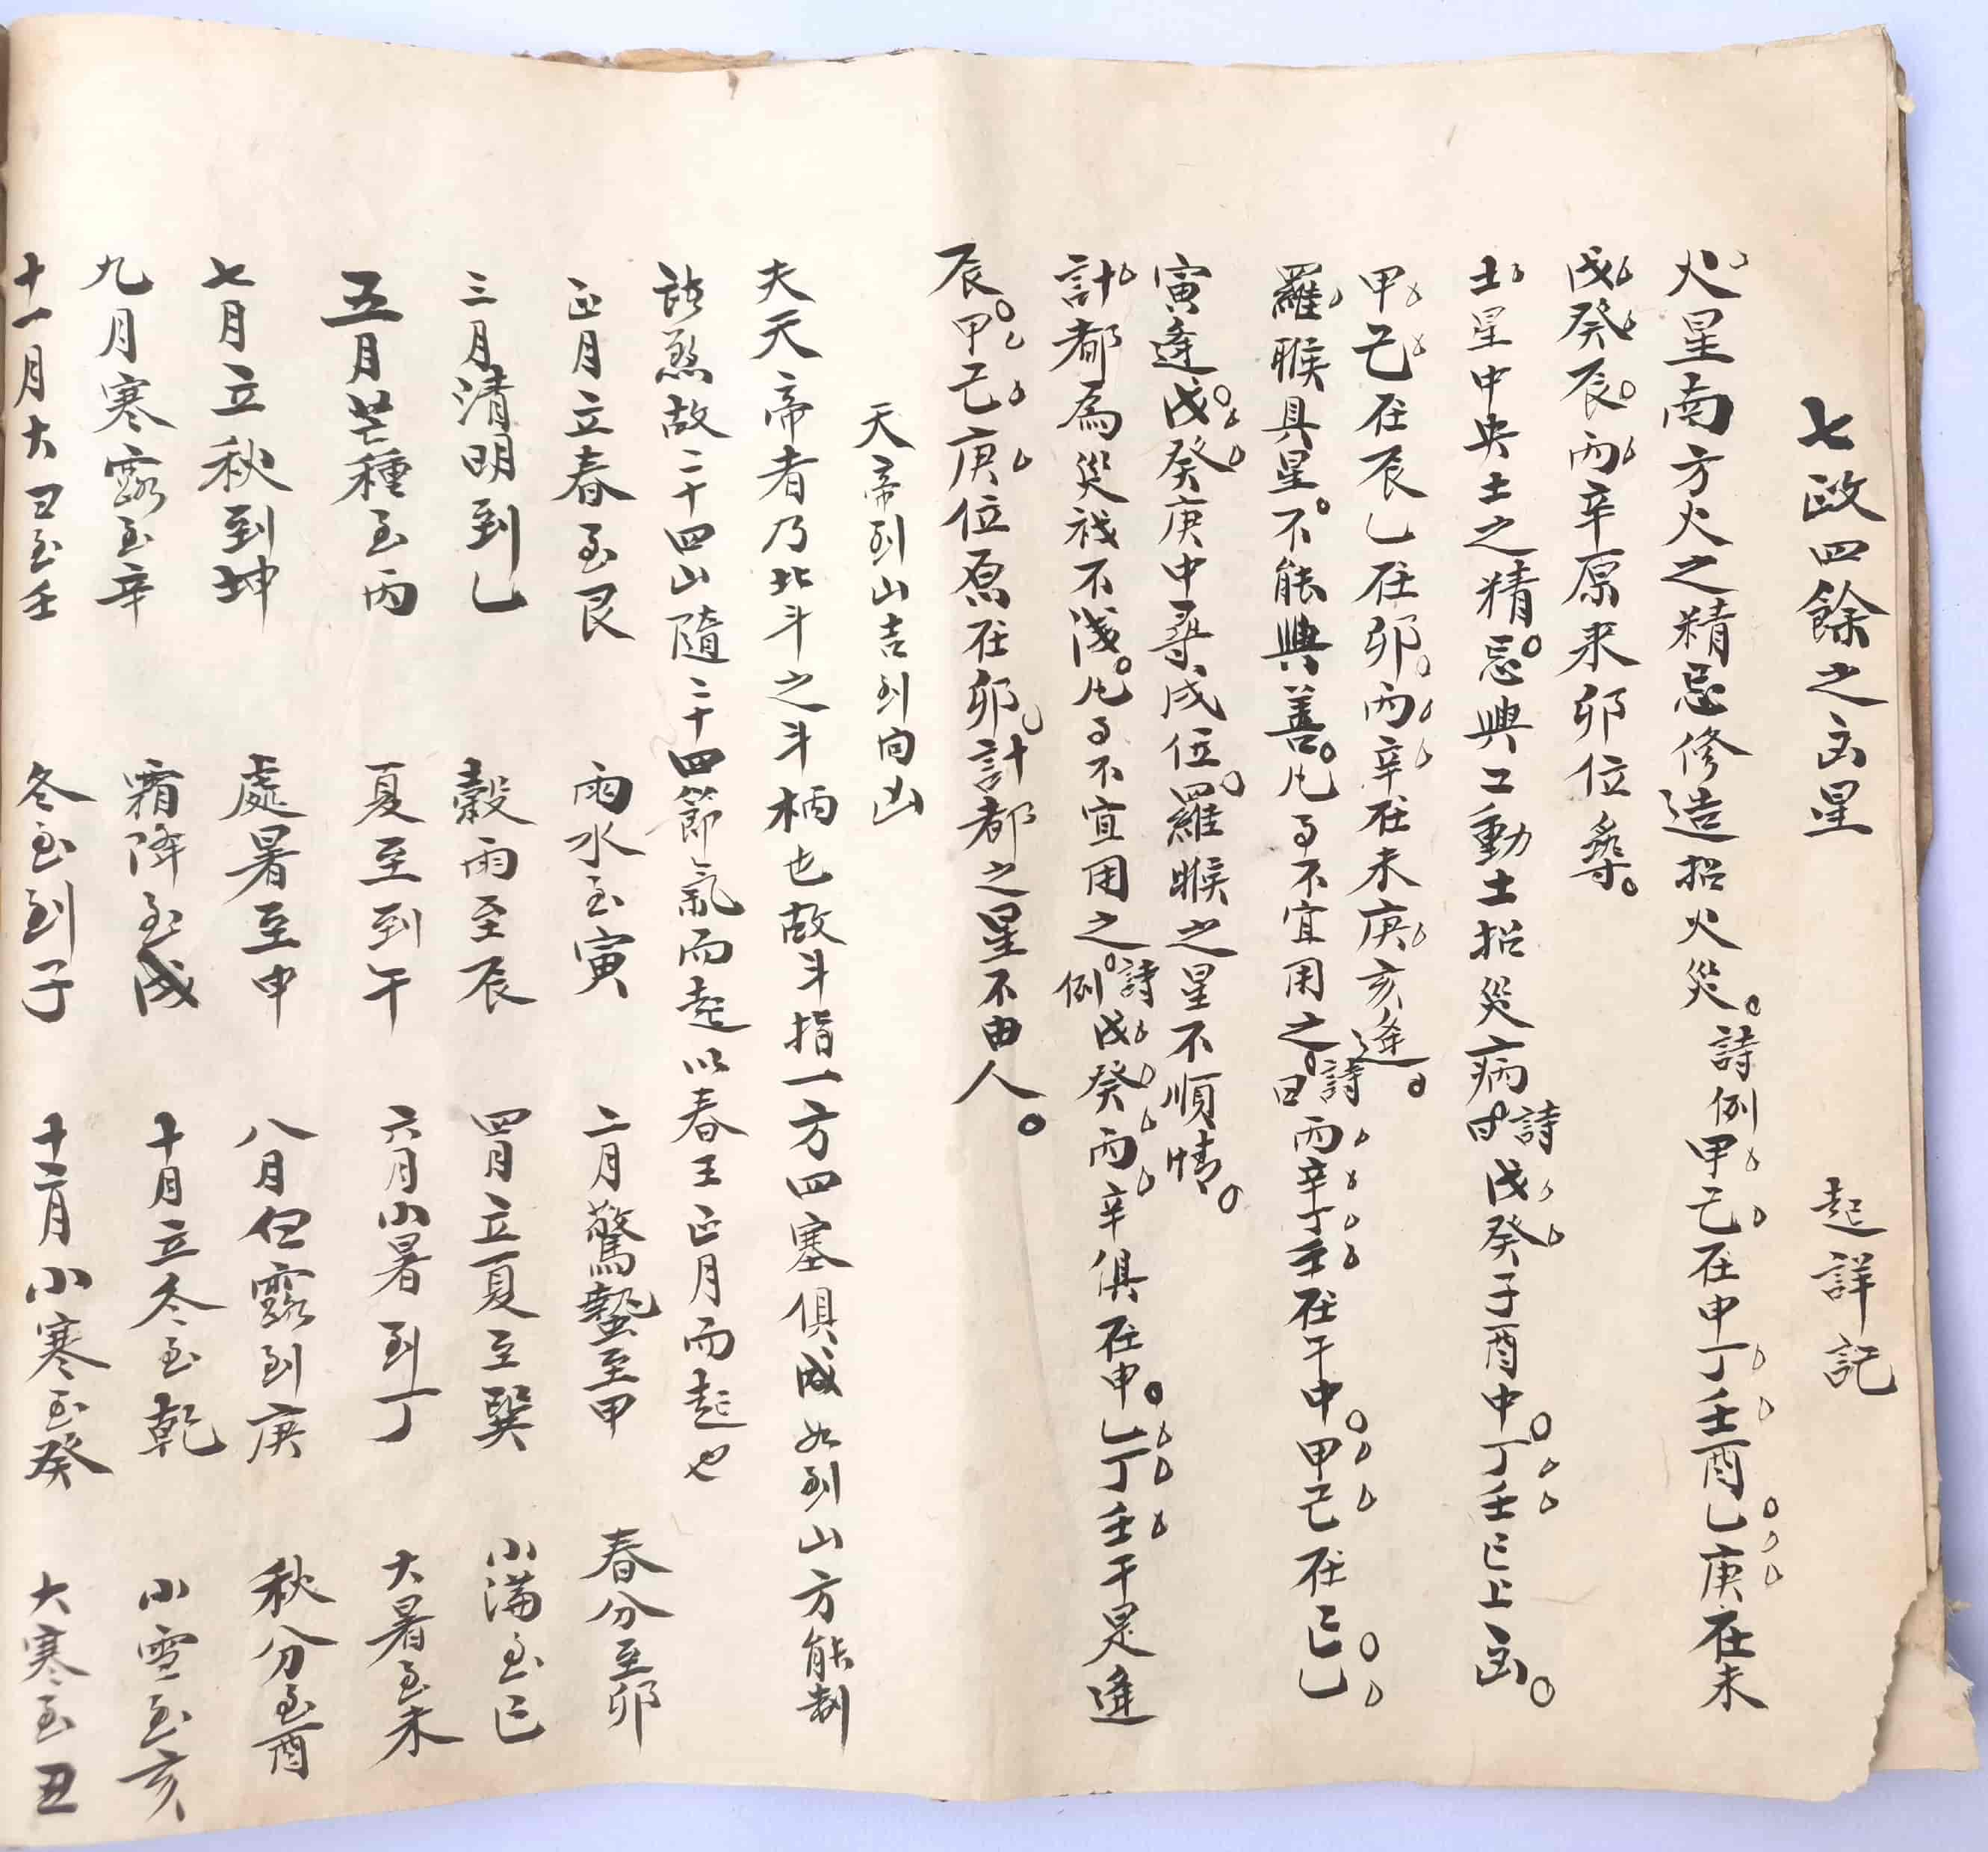 七政四餘之凶星 起詳記
火星南方火之精忌修造招火災。詩例甲己在申丁壬酉乙庚在未
戊癸辰。丙辛原來卯位尋。
土星中央土之精。忌興工動土招災病 詩曰 戊癸子酉中。丁壬巳上凶。
甲己在辰乙在卯。丙辛在未庚亥逢。
羅睺具星。不能興善。凡事不宜用之。詩曰 丙辛丁壬在午中。甲己在巳乙
寅逢。戊癸庚申尋戌位。羅睺之星不順情。
計都為災殃不淺。凡事不宜用之。詩例 戊癸丙辛俱在申。乙丁壬干是逢
辰。甲己庚位原在卯計都之星不由人。
天帝到山吉到向凶
夫天帝者乃北斗之斗柄也故斗指一方四塞俱成如到山方能制
諸煞故二十四山隨二十四節氣而起以春王正月而起也
正月立春至艮 雨水至寅 二月驚蟄至甲 春分至卯
三月清明到乙 穀雨至辰 四月立夏至巽 小滿至巳
五月芒種至丙 夏至到午 六月小暑到丁 大暑至未
七月立秋到坤 處暑至申 八月白露到庚 秋分至酉
九月寒露至辛 霜降至戌 十月立冬至乾 小雪至亥
十一月大雪至壬 冬至到子 十二月小寒至癸 大寒至丑